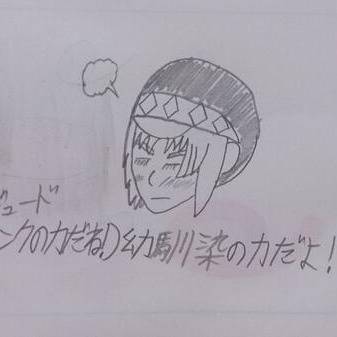 ジュード
ンクの力だね♪幼馴染の力だよ!